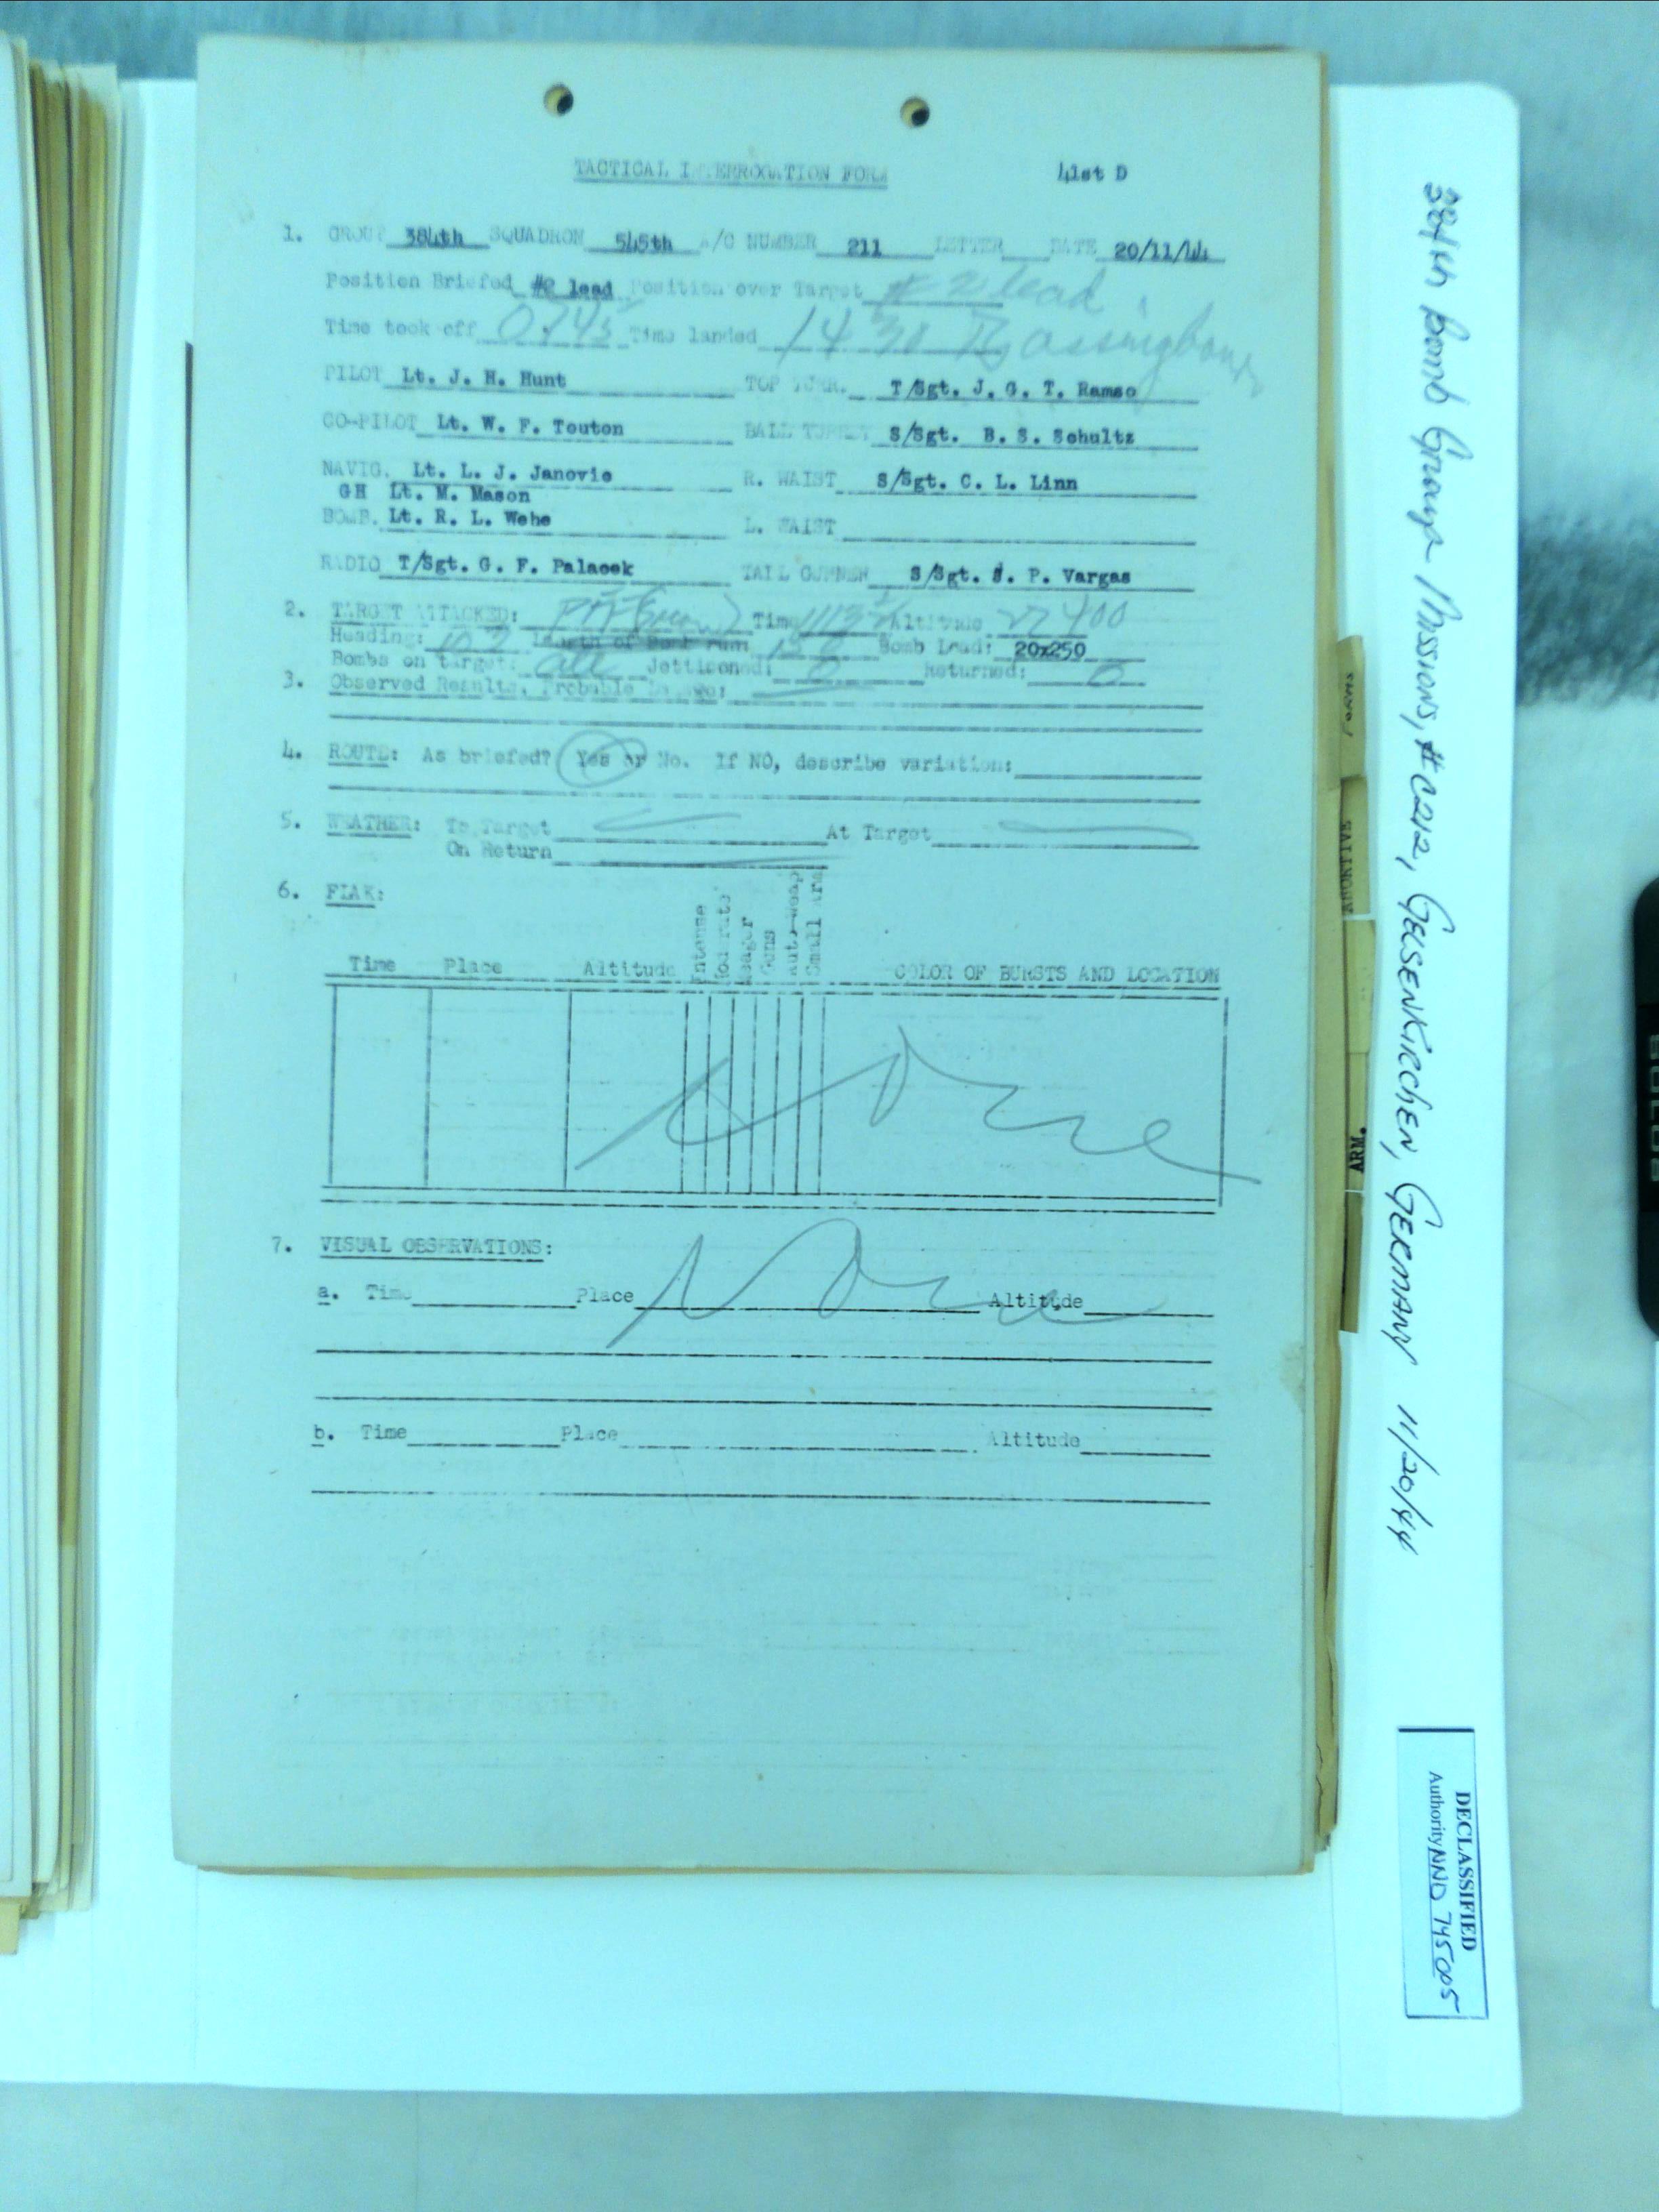 TACTICAL INTERROGATION FORM 41st D
1. GROUP 384th SQUADRON 545th A/C NUMBER 211 LETTER DATE 20/11/44
Position Briefed #2 lead Position over Target #2 lead
Time took off 0745 Time landed 1430 Bassingbourn
PILOT Lt. J. H. Hunt TOP TURR. T/Sgt. J. G. T. Ramso
CO-PILOT Lt. W. F. Touton BALL TURRET S/Sgt. B. S. Schultz
NAVIG. Lt. L. J. Janovic R. WAIST S/Sgt. C. L. Linn
GH Lt. M. Mason
BOMB. Lt. R. L. Wehe L. WAIST
RADIO T/Sgt. G. F. Palacek TAIL GUNNER S/Sgt. S. P. Vargas
2. TARGET ATTACKED: Time Altitude 27400
Heading: Length of Bomb Run: Bomb Load: 20x250
Bombs on target: all Jettisoned: 0 Returned: 0
3. Observed Results, Probable Damage:
4. ROUTE: As briefed? Yes or No. If NO, describe variation:
5. WEATHER: To Target At Target
On Return
6. FLAK:
Time Place Altitude Intense Moderate Meager Guns Auto-Weap Small Arms COLOR OF BURSTS AND LOCATION
None
7. VISUAL OBSERVATIONS:
a. Time Place None Altitude
b. Time Place Altitude
FORMS
ABORTIVE
ARM.
384th Bomb Group Missions, #C212, GELSENKIRCHEN, GERMANY 11/20/44
DECLASSIFIED
Authority NND 745005